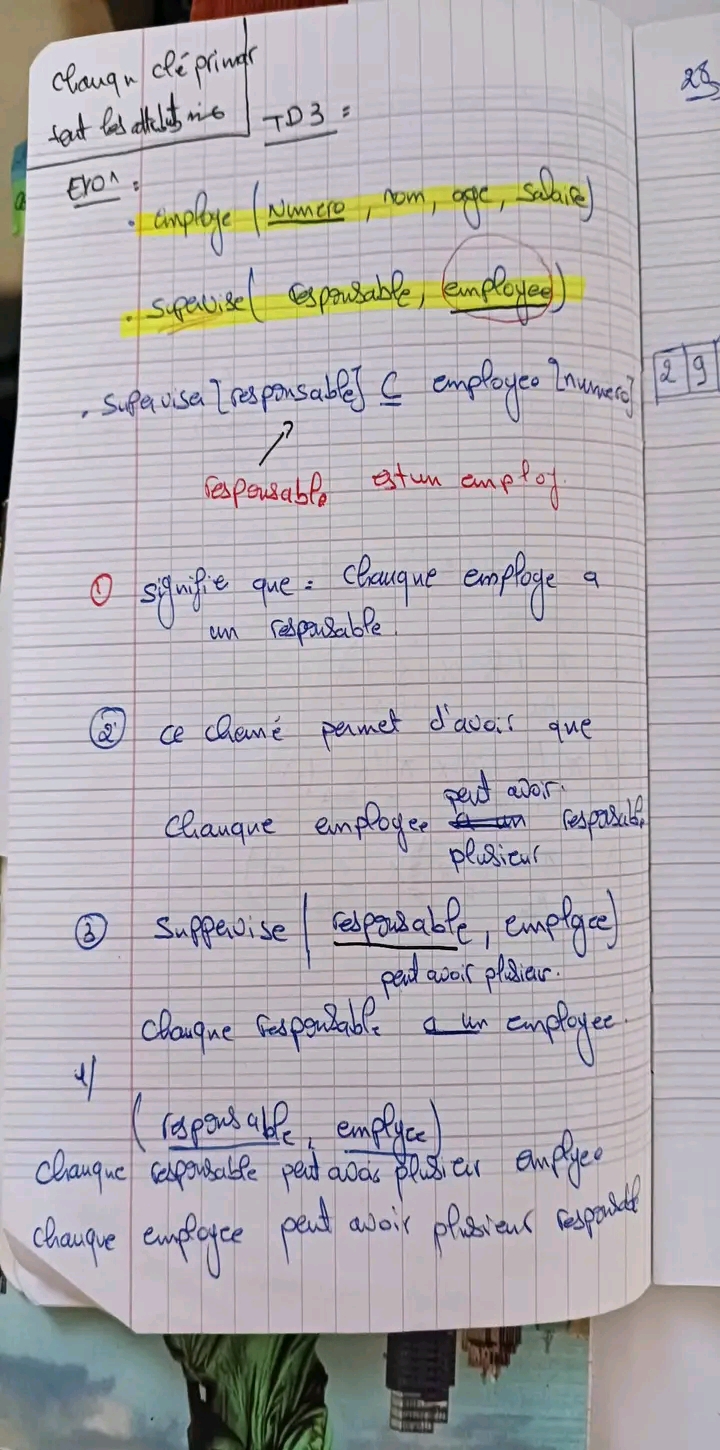 chauqu clé primar
fait les attributs
TD3 :
28
EXO1 :
. employe (Numero, nom, age, Salaire)
. Supervise( responsable, employee)
. Superviser [responsable] ⊆ employeo [numero]
2 9
responsable est un employ.
① signifie que : chauque employe a
un responsable.
② ce chemé permet d'avoir que
peut avoir.
chauque employee a un resposable
plusieur
③ Suppervise ( responsable, employee)
peut avoir plusieur.
chauque responsable a un employee.
1/
(responsable, employee)
chauque responsable peut avoir plusieur employeo
chauque employee peut avoir plusieur responsable